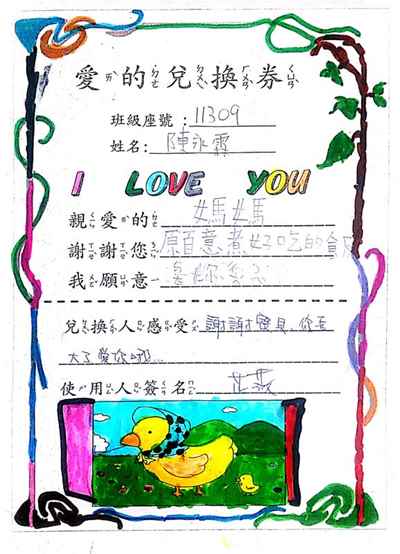 愛的兌換券
班級座號：11309
姓名：陳永霖
I LOVE YOU
親愛的媽媽
謝謝您原百意煮好吃的食
我願意
兌換人感受謝謝寶貝,你長
大了愛你哦...
使用人簽名